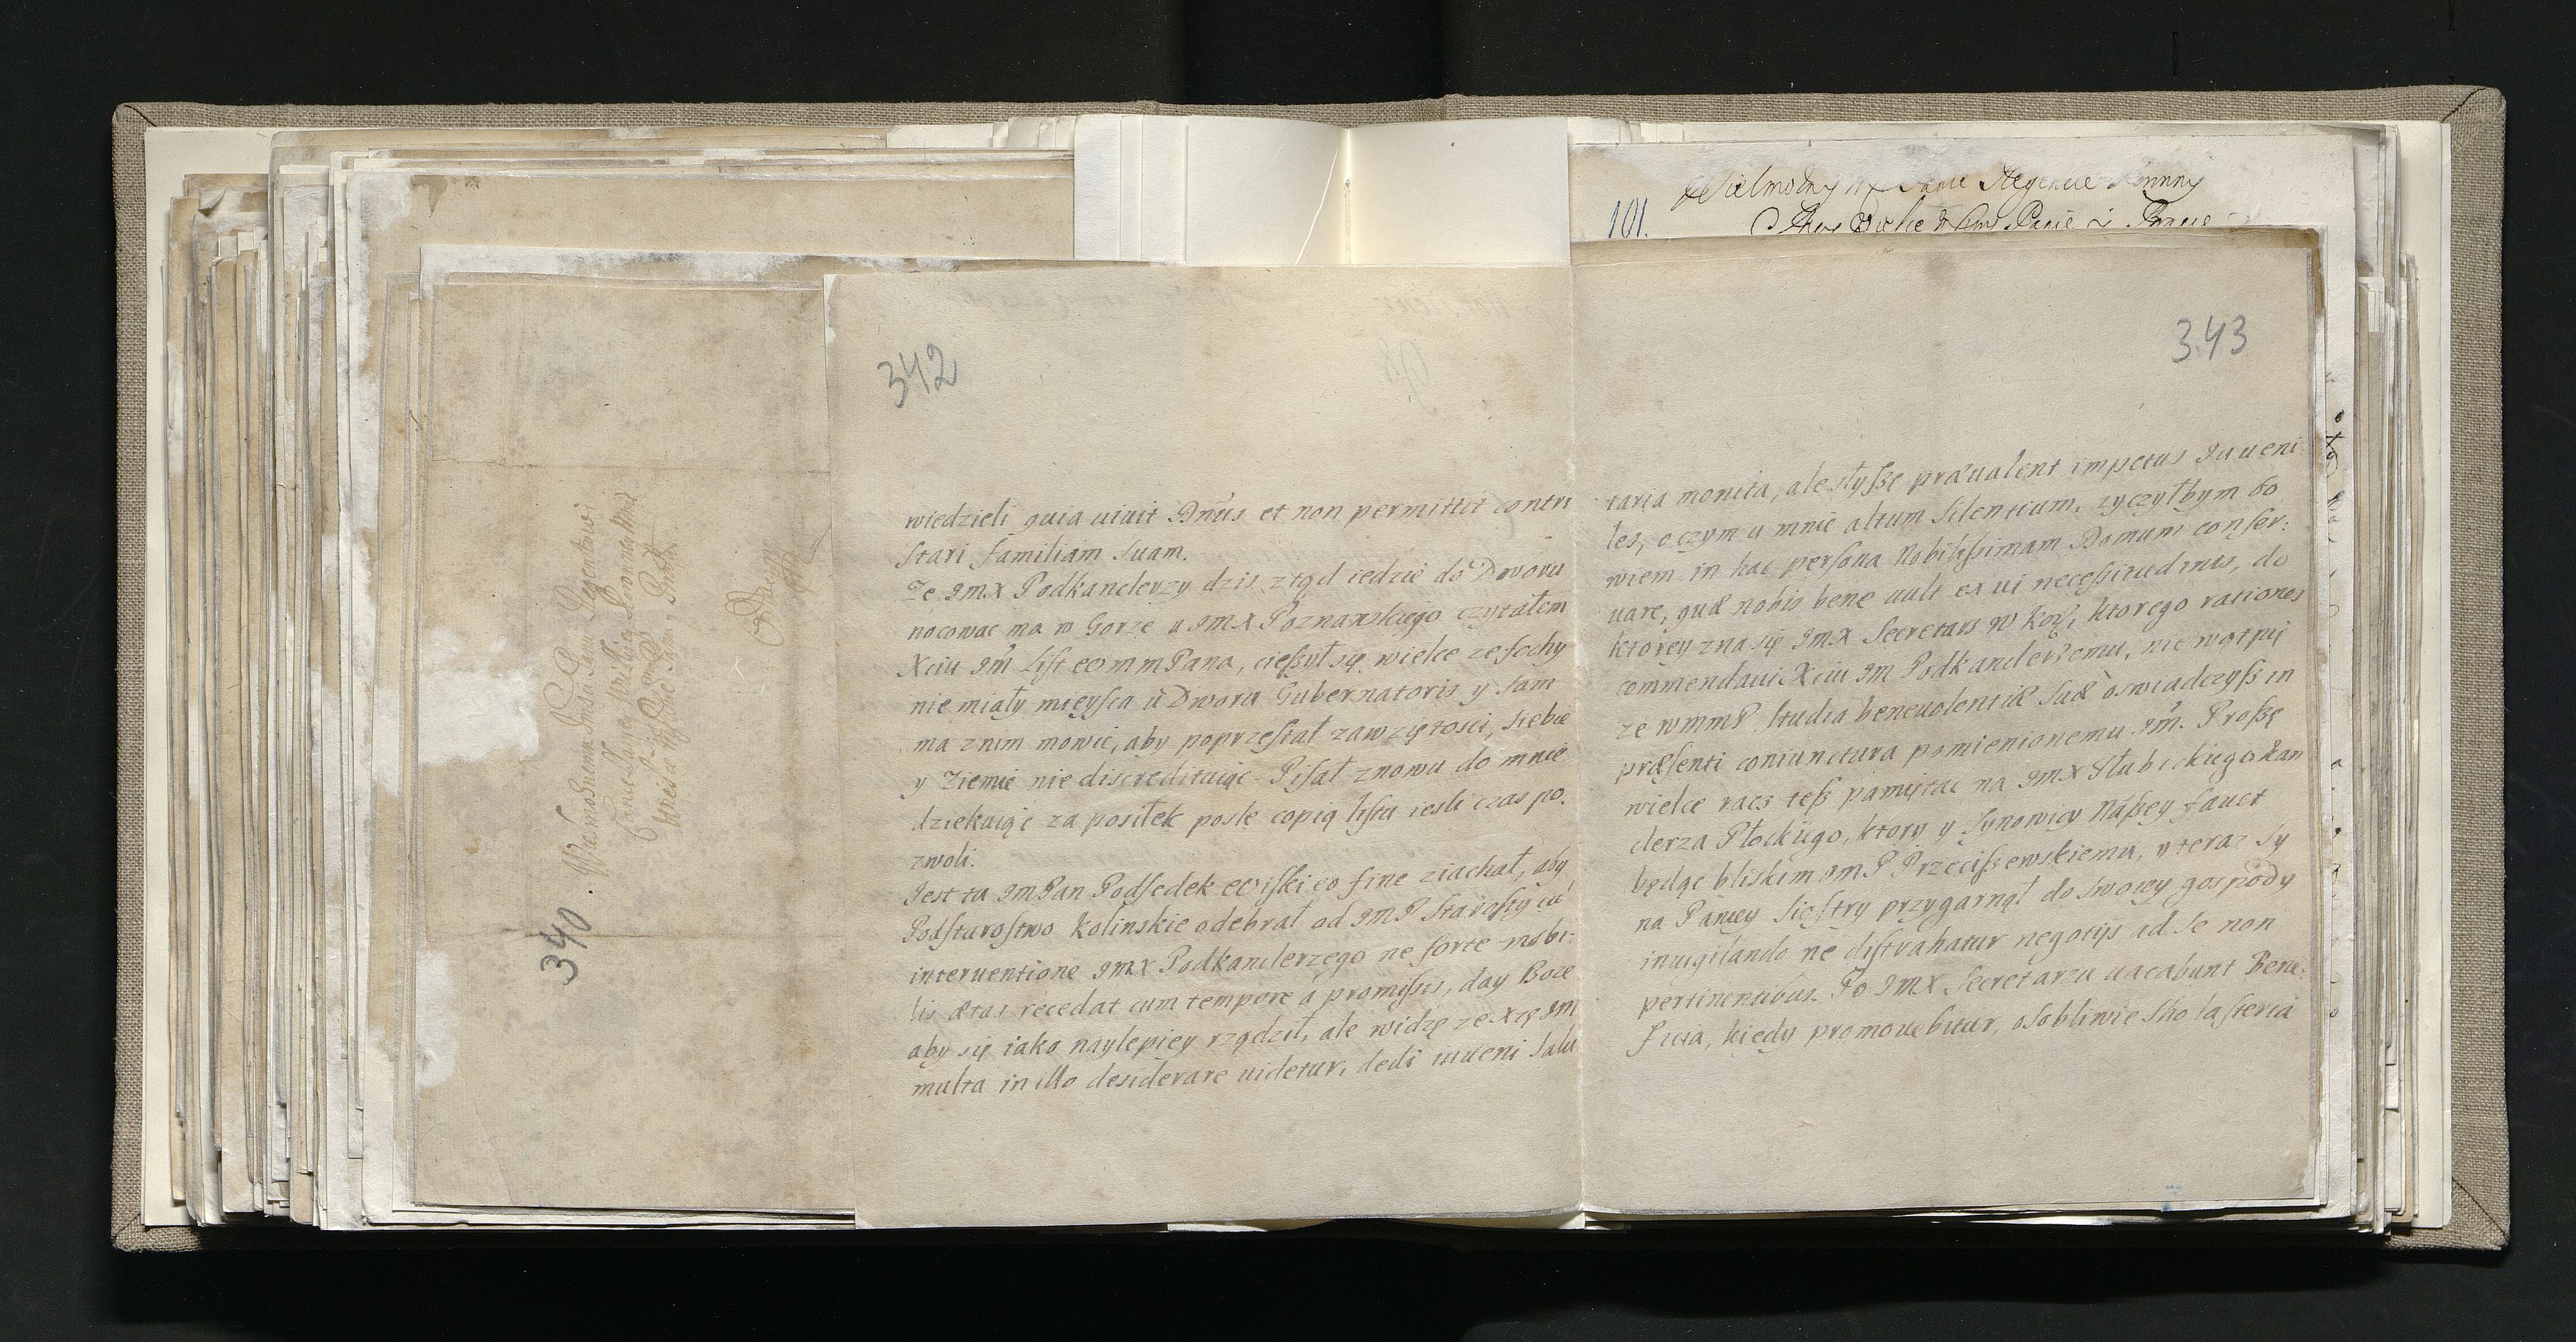 342
wiedzieli quia uiuit Dnus et non permittit contri
stari familiam suam.
Ze JmX Podkanclerzy dzis ztąd iedzie do Dworu
nocowac ma w Gorze u JmX Poznanskiego czytałem
Xciu Jm list WmmPana, cieszył się wielce ze fochy
nie miały mieysca u Dworu Gubernatoris y sam
ma znim mowic, aby poprzestał zawziętosci, siebie
y Ziemie nie discredituiąc. Pisał znowu do mnie
dziekuiąc za posiłek posle copią listu iesli czas po.
zwoli.
Jest tu JmPan Podsedek eo fine ziachał, aby
Podstarostwo Kolinskie odebrał od JmP Starosty cū
interuentione JmX Podkanclerzego ne forte mobi:
lis ætas recedat cum tempore a promissis, day Boże
aby się iako naylepiey rządził, ale widzę ze Xzę Jm
multa in illo desiderare uidetur, dedi iuueni salu
343
taria monita, ale słyszę præualent impetus Juueni
les, o czym u mnie altum silentium, zyczyłbym bo
wiem in hac persona Nobilissimam Domum conser:
uare, quæ nobis bene uult ex ui necessitudinis, do
ktorey zna się JmX Secretars W Kor, ktorego rationes
commendaui Xciu Jm Podkanclerzemu, nie wątpię
ze WmmP studia beneuolentiæ suæ oswiadczysz in
præsenti coniunctura pomienionemu Jm. Proszę
wielce racz tesz pamiętac na JmX Słubickiego Kan
clerza Płockiego, ktory y Synowicy Naszey fauet
będąc bliskim JmP Przeciszewskiemu, y teraz Sy
na Paniey Siestry przygarnął do swowy gospody
inuigilando ne distrahatur negotijs ad se non
pertinentibus. Po JmX Secretarzu uacabunt Bene:
ficia, kiedy promouebitur, osobliwie Sholasteria
340
101.